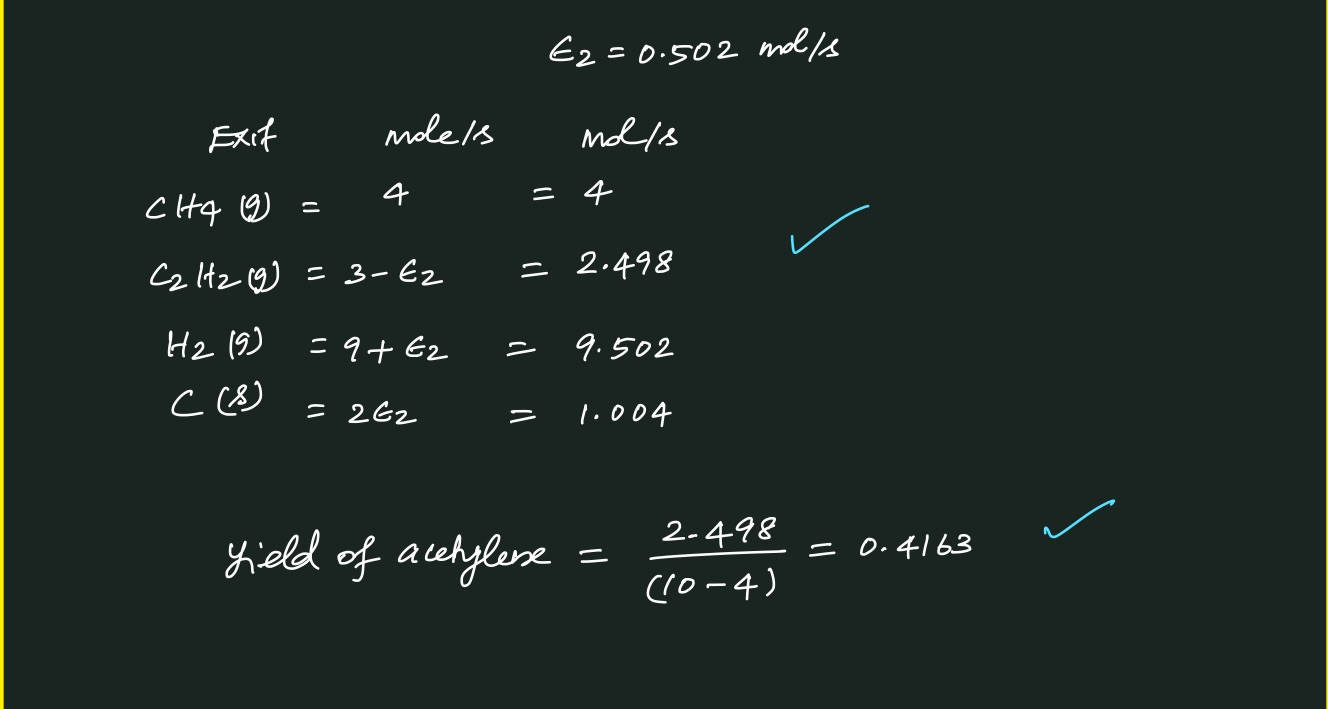 ϵ2 = 0.502 mol/s
Exit mole/s mol/s
CH4 (g) = 4 = 4
C2H2(g) = 3-ϵ2 = 2.498
H2 (g) = 9+ϵ2 = 9.502
C (s) = 2ϵ2 = 1.004
yield of acetylene = 2.498/(10-4) = 0.4163